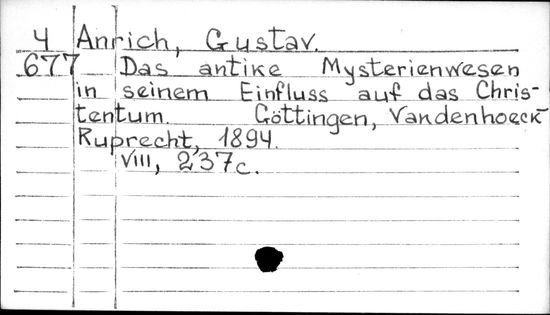 4 Anrich, Gustav.
677 Das antike Mysterienwesen
in seinem Einfluss auf das Chris-
tentum. Göttingen, Vandenhoeck-
Ruprecht, 1894.
VIII, 237c.